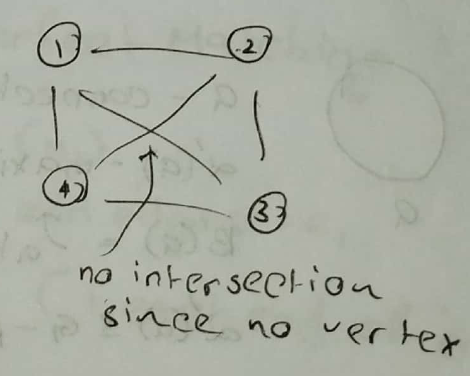 1 2
4 3
no intersection
since no vertex